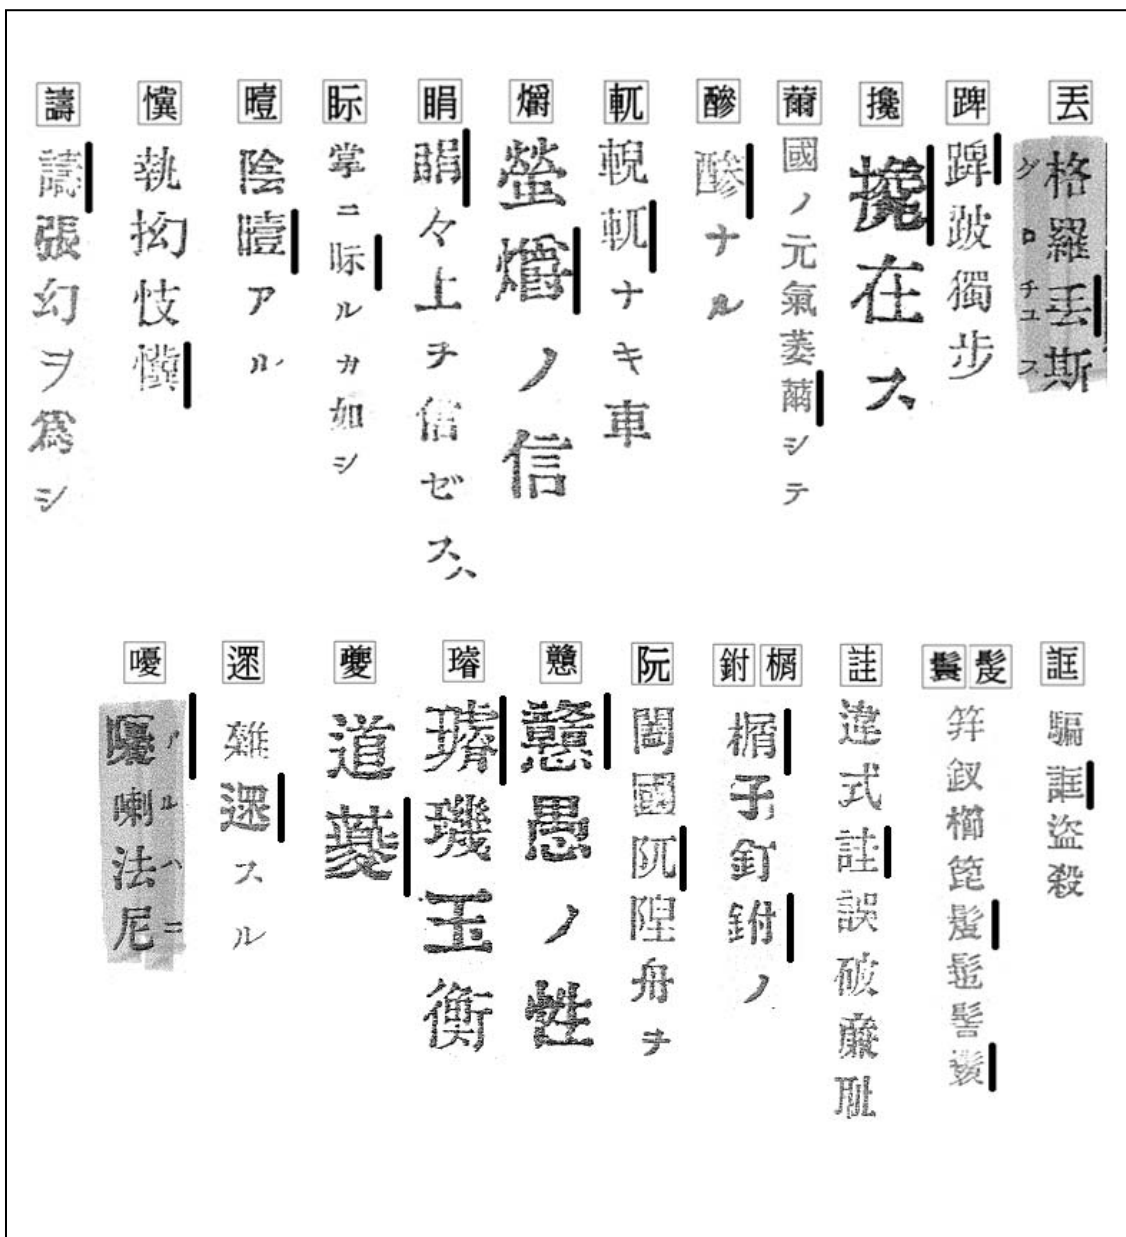 丟
格羅丟斯
グロチユス
跛獨步
攙
攙在ス
薾
國ノ元氣萎薾シテ
醦
醦ナル
軏
輗軏ナキ車
爝
螢爝ノ信
睊
睊々上ヲ信ゼズハ
眎
掌ニ眎ルカ如シ
曀
陰曀アル
懻
執拗忮懻
譸
譸張幻ヲ爲シ
誆
騙誆盜殺
髲
鬟
笄釵櫛篦髲髢髻鬟
詿
違式詿誤破廉耻
榍
榍子釘ノ
阢
闔國阢隉舟ヲ
戇
戇愚ノ性
璿
璿璣玉衡
道
遝
雜遝スル
嚘
嚘喇法尼
ノルハニ